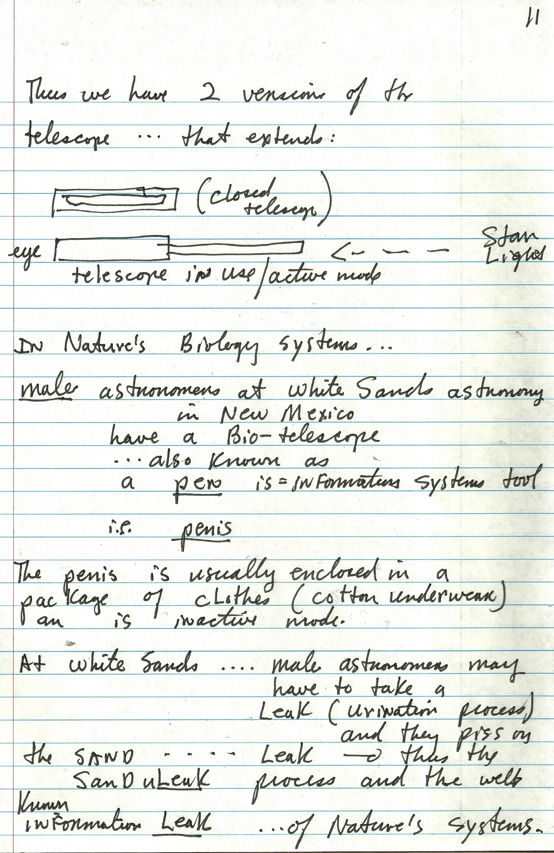 11
Thus we have 2 versions of the
telescope ... that extends:
(closed
telescope)
eye
Star
Light
telescope in use/active mode
In Nature's Biology systems...
male astronomers at white Sands astronomy
in New Mexico
have a Bio-telescope
...also known as
a pen is = INFormation systems tool
i.e. penis
The penis is usually enclosed in a
package of clothes (cotton underwear)
an is inactive mode.
At white Sands .... male astronomers may
have to take a
Leak (urination process)
and they piss on
the SAND ----- Leak → thus the
SanDuLeak process and the well
Known
inFormation Leak ...of Nature's systems.